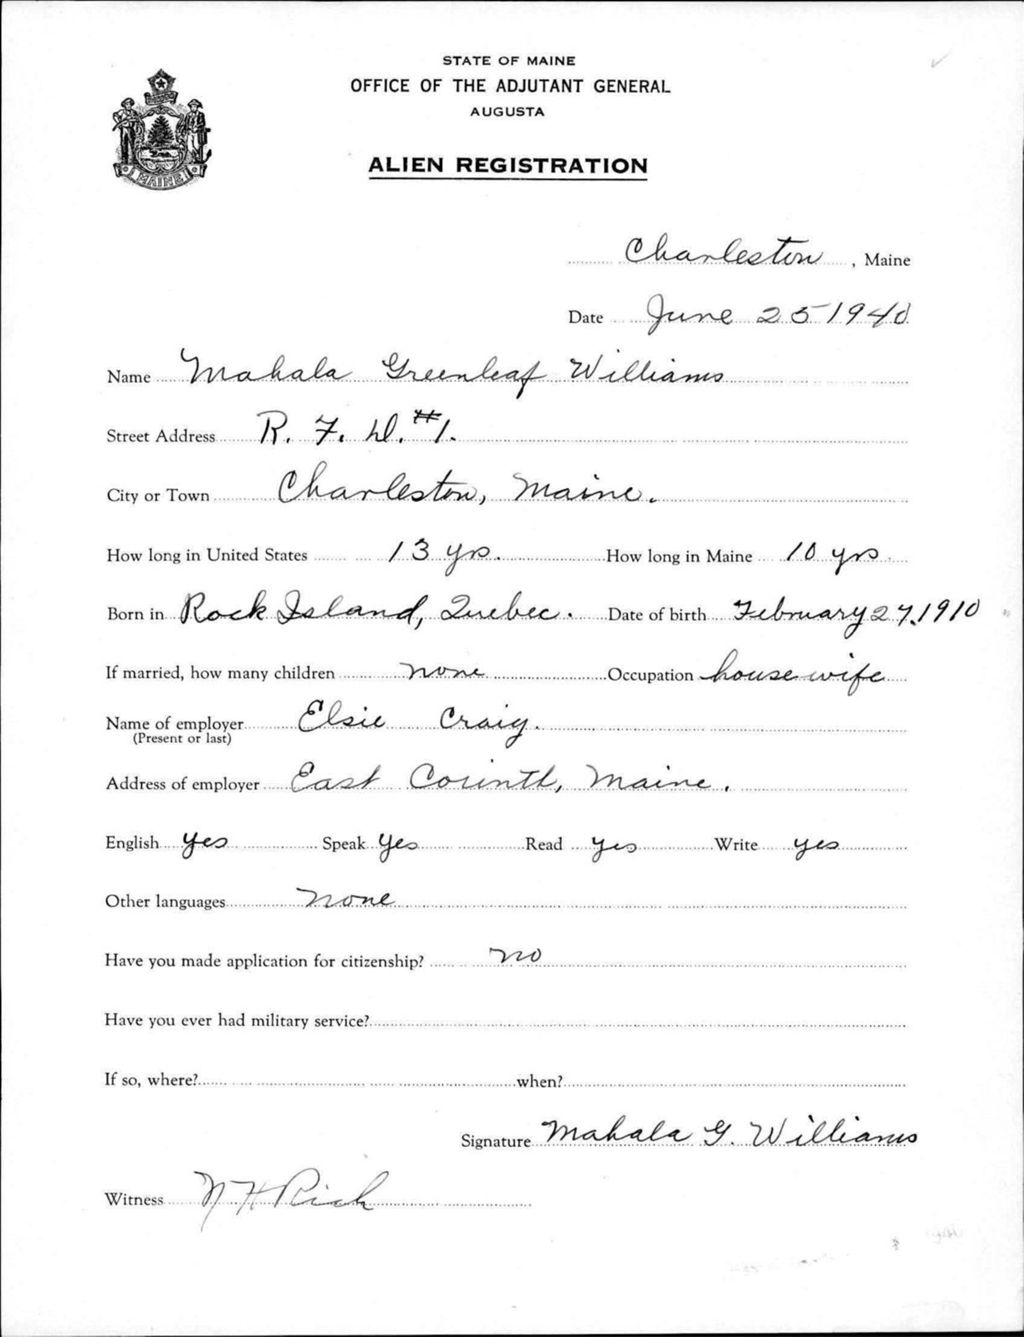 STATE OF MAINE
OFFICE OF THE ADJUTANT GENERAL
AUGUSTA
ALIEN REGISTRATION
MAINE
Charleston, Maine
Date June 25 1940
Name Mahala Greenleaf Williams
Street Address R. F. D. #1.
City or Town Charleston, Maine.
How long in United States 13 yrs. How long in Maine 10 yrs.
Born in Rock Island, Quebec. Date of birth February 27, 1910
If married, how many children none Occupation housewife
Name of employer Elsie Craig.
(Present or last)
Address of employer East Corinth, Maine.
English yes Speak yes Read yes Write yes
Other languages none
Have you made application for citizenship? no
Have you ever had military service?
If so, where? when?
Signature Mahala G. Williams
Witness N H Rich